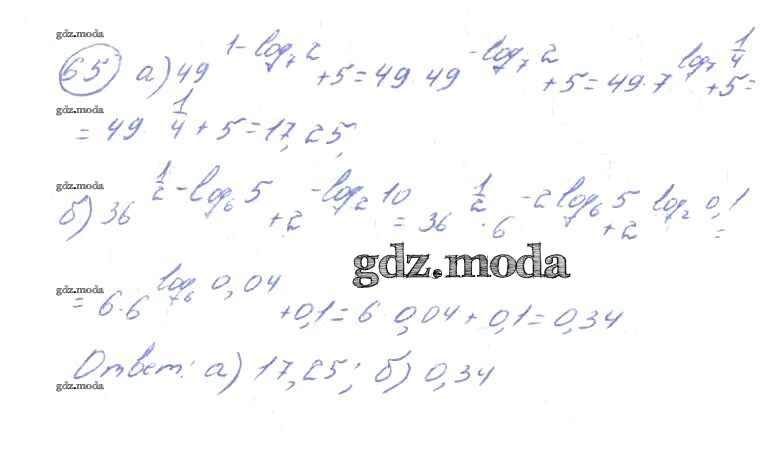 gdz.moda
65 а) 49^(1-log_7 2) + 5 = 49 · 49^(-log_7 2) + 5 = 49 · 7^(log_7 1/4) + 5 =
gdz.moda
= 49 · 1/4 + 5 = 17,25;
gdz.moda
б) 36^(1/2 - log_6 5) + 2^(-log_2 10) = 36^(1/2) · 6^(-2log_6 5) + 2^(log_2 0,1) =
gdz.moda
gdz.moda
= 6 · 6^(log_6 0,04) + 0,1 = 6 · 0,04 + 0,1 = 0,34
Ответ: а) 17,25; б) 0,34
gdz.moda